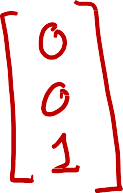 0
0
1